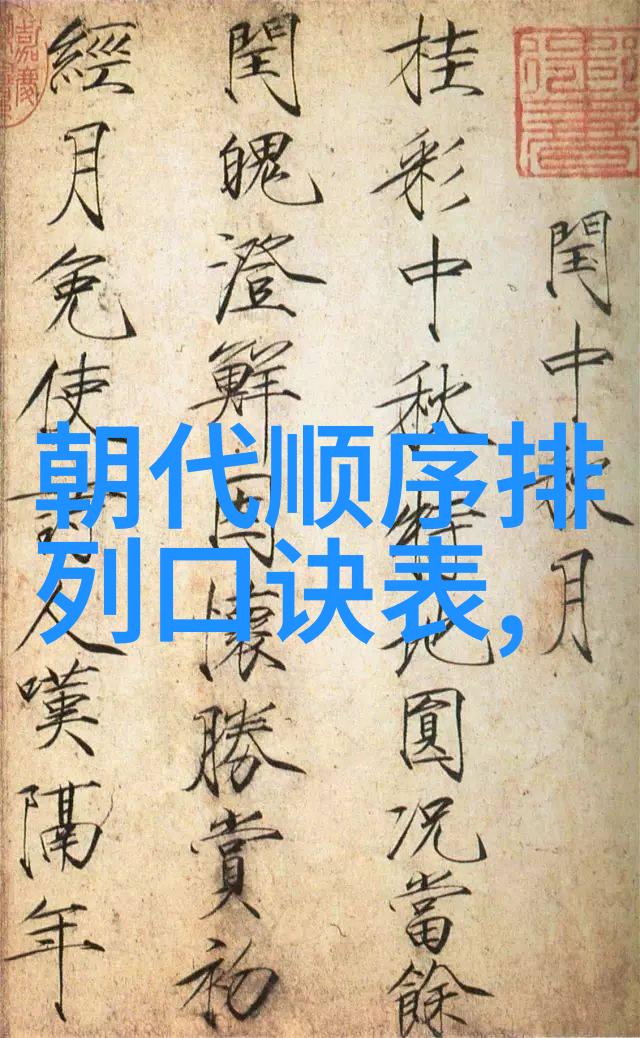 閏中秋月
桂彩中秋特地圓況當餘
閏魄澄鮮因懷勝賞初
經月免使詩人嘆隔年
朝代顺序排
列口诀表,